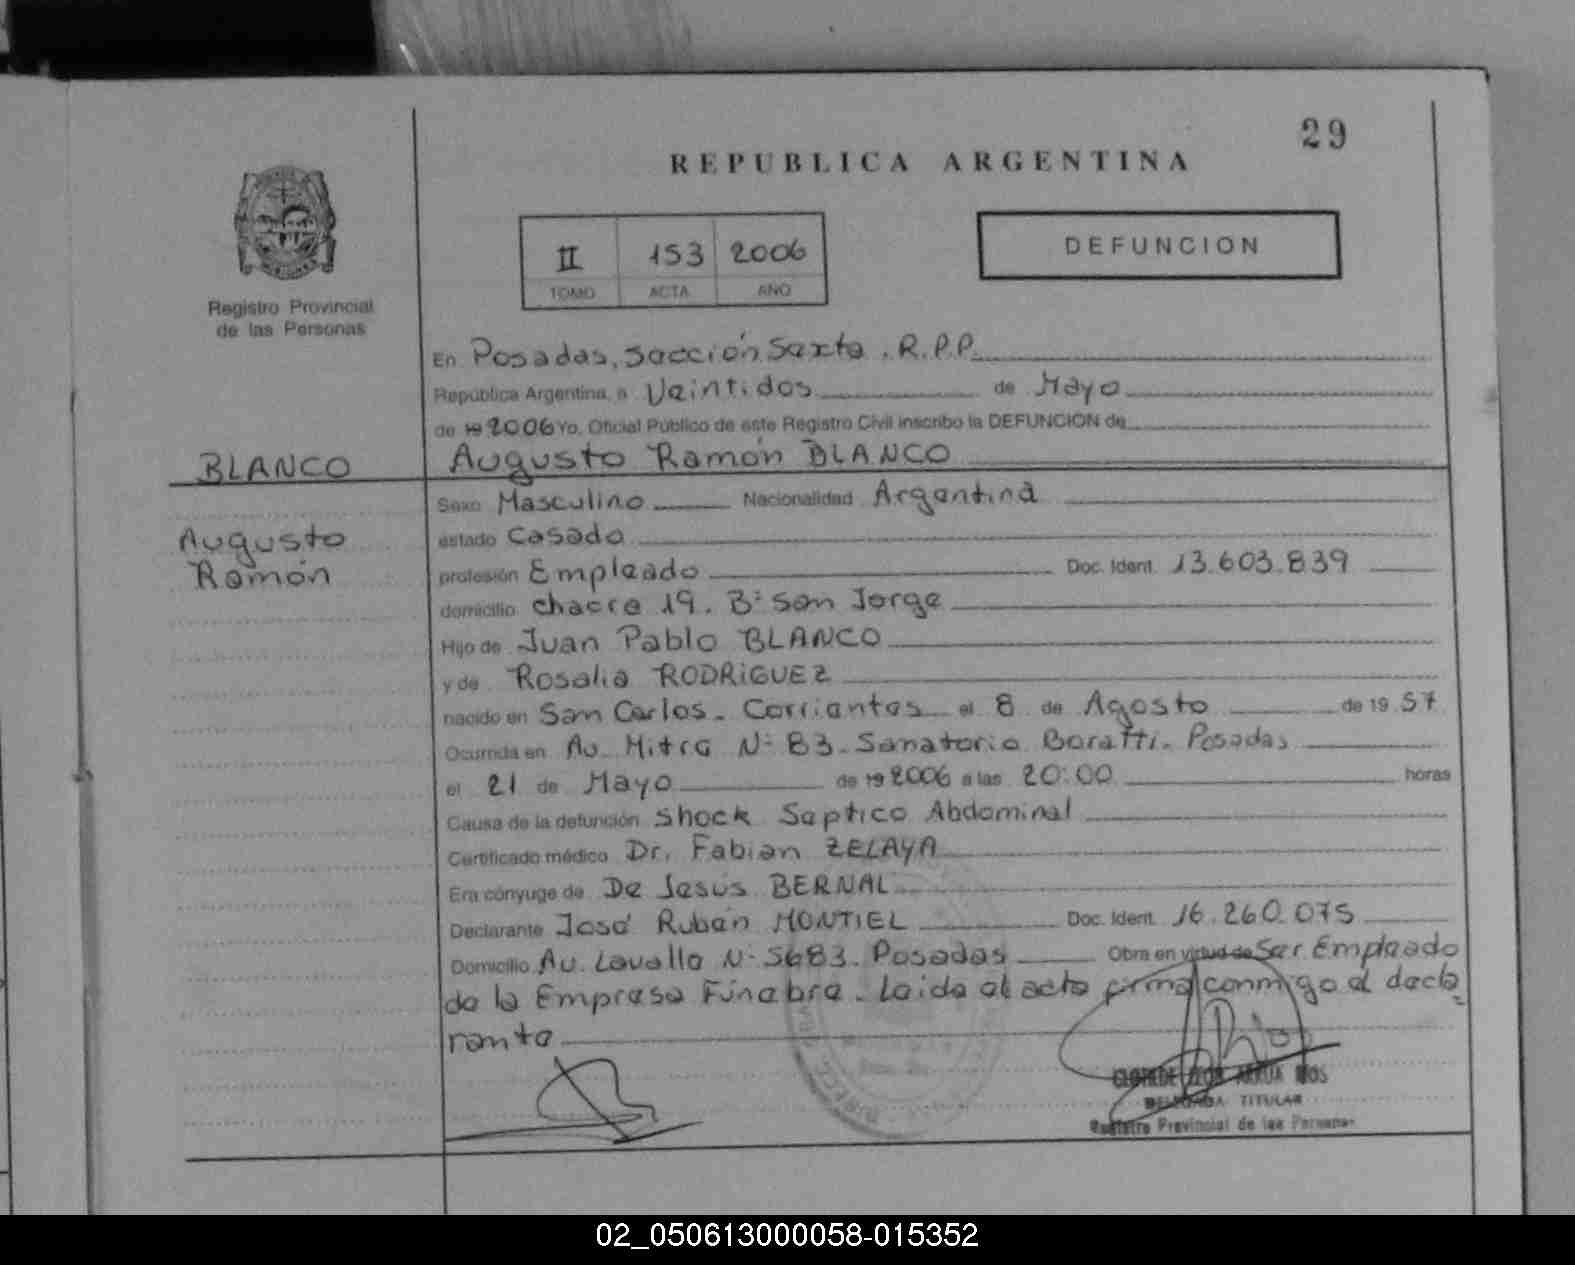 29
REPUBLICA ARGENTINA
II 153 2006
TOMO ACTA AÑO
DEFUNCION
Registro Provincial
de las Personas
En Posadas, Sección Sexta. R.P.P.
República Argentina, a Veintidos de Mayo
de 19 2006 Yo, Oficial Público de este Registro Civil inscribo la DEFUNCION de
BLANCO
Augusto Ramón BLANCO
Augusto
Ramón
Sexo Masculino Nacionalidad Argentina
estado Casado
profesión Empleado Doc. Ident. 13.603.839
domicilio chacra 19. Bº San Jorge
Hijo de Juan Pablo BLANCO
y de Rosalia RODRiGUEZ
nacido en San Carlos - Corrientes el 8 de Agosto de 19 57
Ocurrida en Av. Mitre Nº 83 - Sanatorio Boratti - Posadas
el 21 de Mayo de 19 2006 a las 20:00 horas
Causa de la defunción Shock Septico Abdominal
Certificado médico Dr. Fabian ZELAYA
Era cónyuge de De Jesús BERNAL
Declarante José Rubén MONTIEL Doc. Ident. 16.260.075
Domicilio Av. Lavalle Nº 5683 - Posadas Obra en virtud de Ser Empleado
de la Empresa Fúnebre - Leida el acta firma conmigo el decla
rante
CLOTILDE FLOR ARRUA RIOS
DELEGADA TITULAR
Registro Provincial de las Personas
02_050613000058-015352